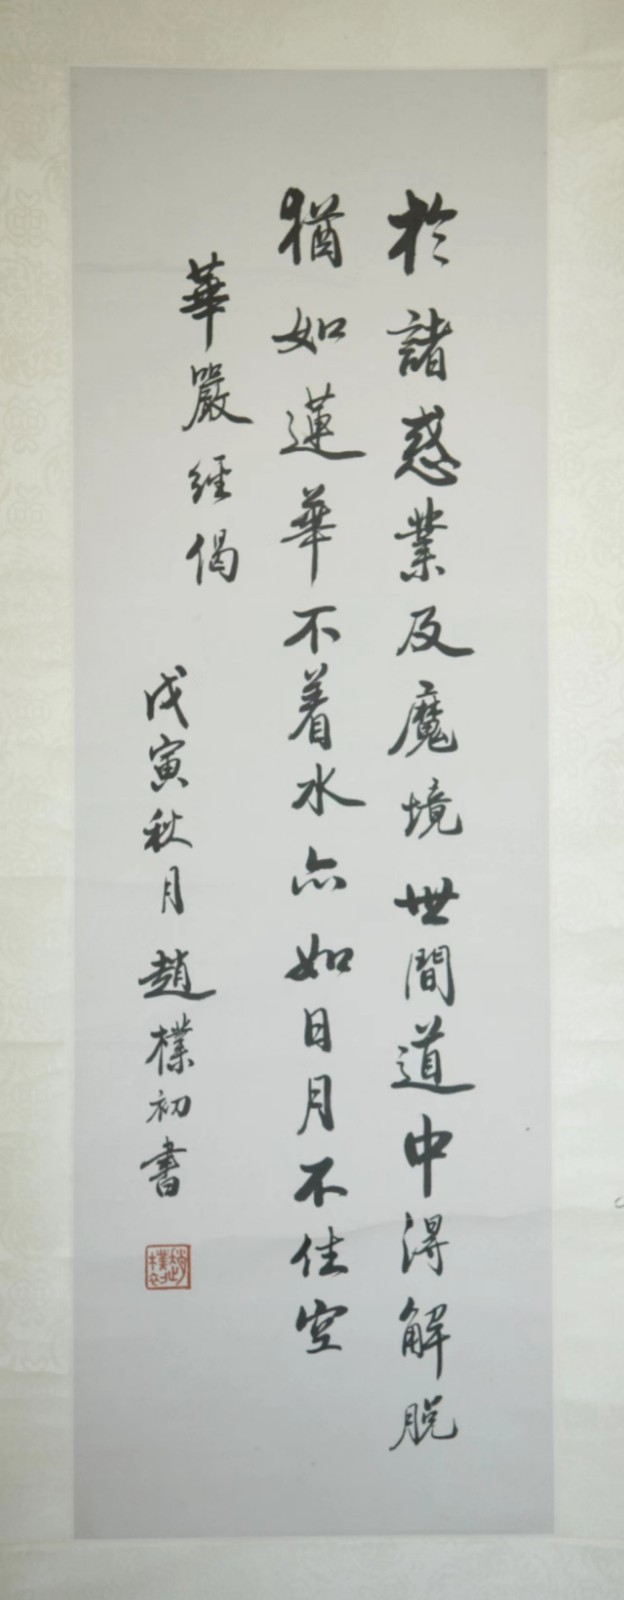 於諸惑業及魔境世間道中得解脫
猶如蓮華不着水亦如日月不住空
華嚴經偈
戊寅秋月趙樸初書
趙樸初